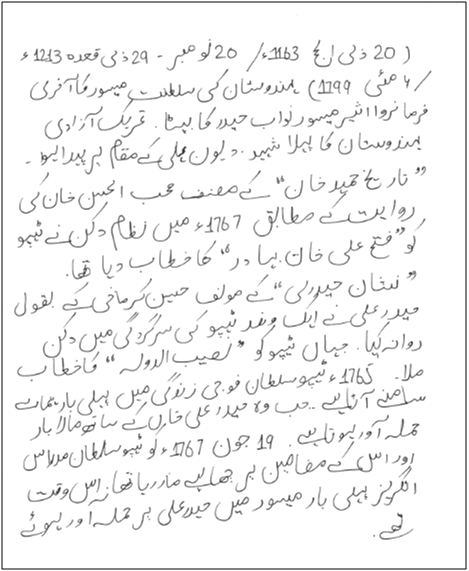 ( 20 ذی الحج 1163ء / 20 نومبر - 29 ذی قعدہ 1213ء
/ 4 مئی 1799) ہندوستان کی سلطنت میسور کا آخری
فرمانروا اثیر میسور نواب حیدر کا بیٹا. تحریک آزادی
ہندوستان کا پہلا شہید. دیون ہلی کے مقام پر پیدا ہوا۔
"تاریخ حمید خان" کے مصنف محب الحسن خان کی
روایت کے مطابق 1767ء میں نظام دکن نے ٹیپو
کو "فتح علی خان بہادر" کا خطاب دیا تھا.
"نشان حیدری" کے مولف حسین کرمانی کے بقول
حیدر علی نے ایک وفد ٹیپو کی سرکردگی میں دکن
روانہ کیا. جہاں ٹیپو کو "نصیب الدولہ" کا خطاب
ملا. 1765ء ٹیپو سلطان فوجی زندگی میں پہلی بار ہمارے
سامنے آتا ہے.. جب وہ حیدر علی خان کے ساتھ مالا بار
حملہ آور ہوتا ہے. 19 جون 1767ء کو ٹیپو سلطان مدراس
اور اس کے مضافات پر چھاپے مار رہا تھا. اس وقت
انگریز پہلی بار میسور میں حیدر علی پر حملہ آور ہوئے
تھے.